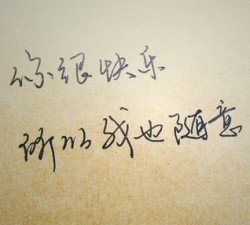 你很快乐
所以我也随意